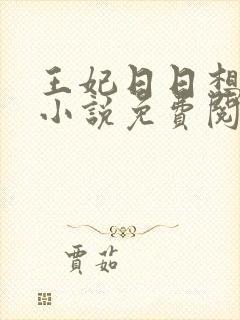 王妃日日想
小說免費閱
賈茹